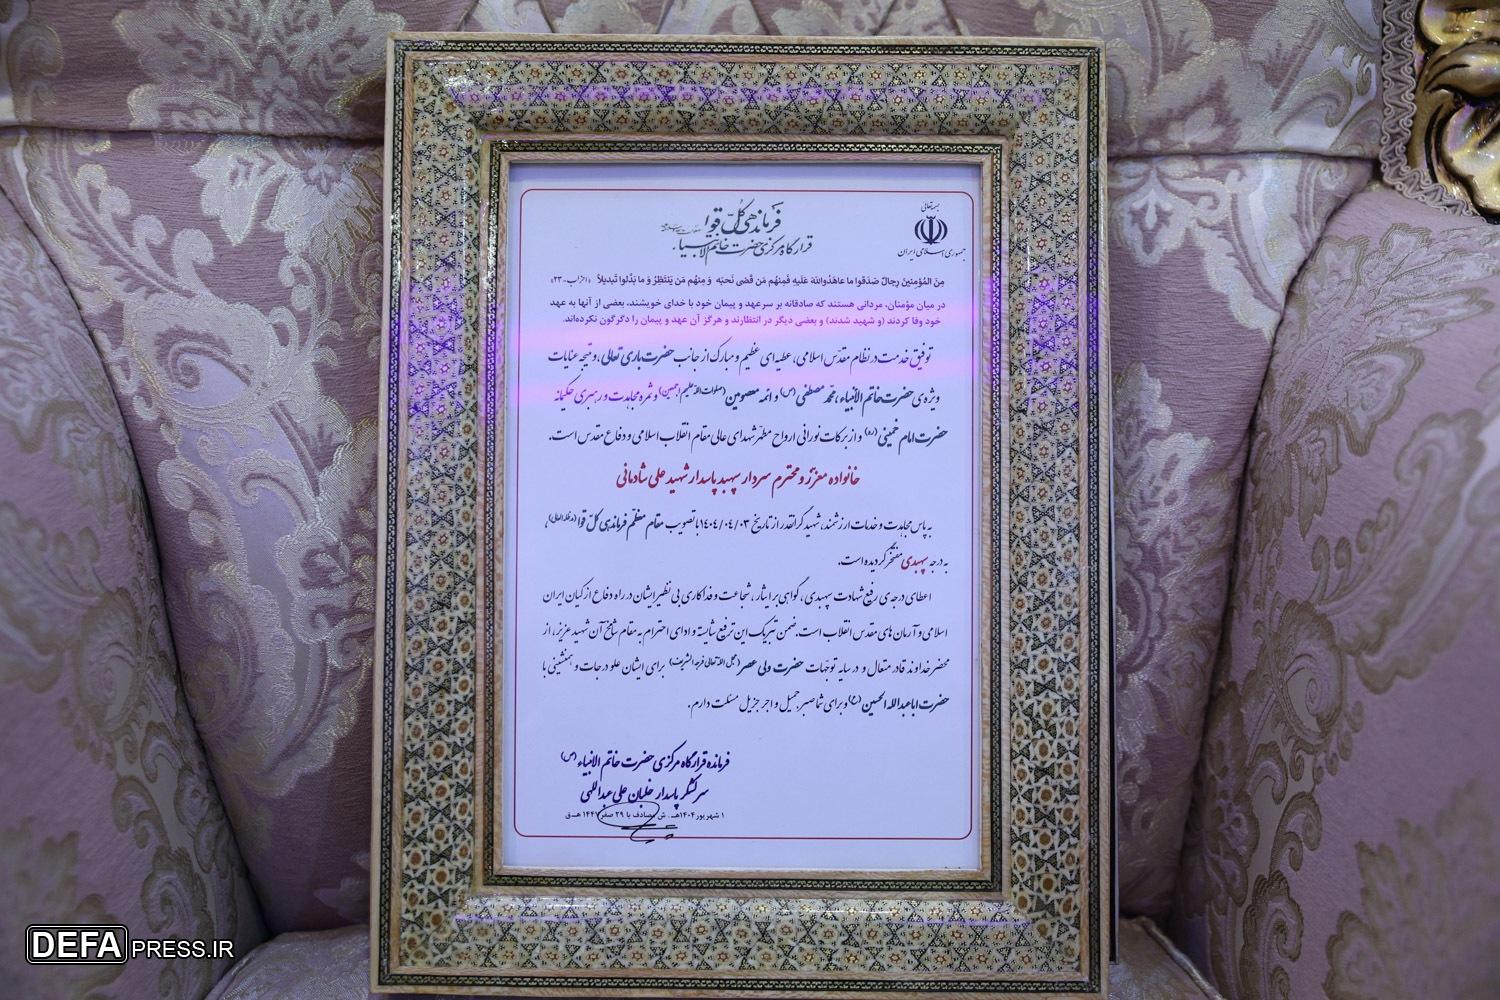 بسمه‌تعالی
جمهوری اسلامی ایران
فرماندهی کلّ قوا
قرارگاه مرکزی حضرت خاتم الانبیاء
مِنَ المُؤمنینَ رِجالٌ صَدَقوا ما عاهَدُوااللهَ عَلَیهِ فَمِنهُم مَن قَضی نَحبَه وَ مِنهُم مَن یَنتَظِرُ وَ ما بَدَّلوا تَبدیلاً «احزاب-۲۳»
در میان مؤمنان، مردانی هستند که صادقانه بر سر عهد و پیمان خود با خدای خویشند، بعضی از آنها به عهد
خود وفا کردند (و شهید شدند) و بعضی دیگر در انتظارند و هرگز آن عهد و پیمان را دگرگون نکرده‌اند.
توفیق خدمت در نظام مقدّس اسلامی، عطیه‌ای عظیم و مبارک از جانب حضرت باری تعالی، و نتیجه عنایات
ویژه‌ی حضرت خاتم الأنبیاء، محمّد مصطفی (ص) و ائمه معصومین (صلوات الله علیهم اجمعین) و ثمره مجاهدت و رهبری حکیمانه
حضرت امام خمینی (ره) و از برکات نورانی ارواح مطهّر شهدای عالی مقام انقلاب اسلامی و دفاع مقدس است.
خانواده معزز و محترم سردار سپهبد پاسدار شهید علی شادمانی
به پاس مجاهدت و خدمات ارزشمند، شهید گرانقدر از تاریخ ۱۴۰۴/۰۴/۰۳ با تصویب مقام معظّم فرماندهی کلّ قوا (مدظله العالی)
به درجه سپهبدی مفتخر گردیده است.
اعطای درجه‌ی رفیع شهادت سپهبدی، گواهی بر ایثار، شجاعت و فداکاری بی نظیر ایشان در راه دفاع از کیان ایران
اسلامی و آرمان های مقدس انقلاب است. ضمن تبریک این ترفیع شایسته و ادای احترام به مقام شامخ آن شهید عزیز، از
محضر خداوند قادر متعال و در سایه توجّهات حضرت ولی عصر (عجل الله تعالی فرجه الشریف) برای ایشان علو درجات و همنشینی با
حضرت اباعبدالله الحسین (ع) و برای شما صبر جمیل و اجر جزیل مسئلت دارم.
فرمانده قرارگاه مرکزی حضرت خاتم الانبیاء (ص)
سرلشکر پاسدار خلبان علی عبداللهی
۱ شهریور ۱۴۰۴ هـ. ش مصادف با ۲۹ صفر ۱۴۴۷ هـ.ق
DEFAPRESS.IR